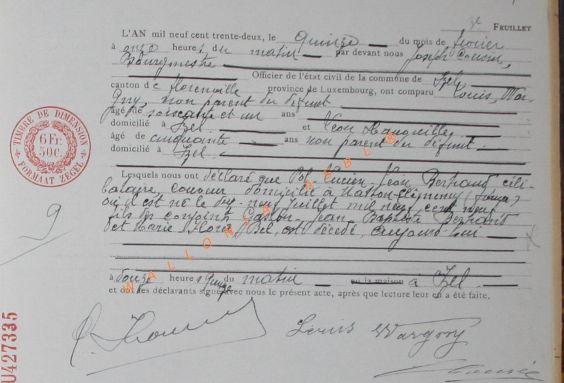 3e FEUILLET
L'AN mil neuf cent trente-deux, le quinze du mois de février
à onze heures du matin par devant nous Joseph
Bourgmestre
Officier de l'état civil de la commune de Izel,
canton de Florenville province de Luxembourg, ont comparu Louis War-
gny, non parent du défunt
âgé de soixante et un ans
domicilié à Izel. et Léon
âgé de cinquante ans non parent du défunt.
domicilié à Izel.
Lesquels nous ont déclaré que Pol-Lucien-Jean Bertrand céli-
bataire, domicilié à
où il est né le dix-neuf juillet mil neuf cent neuf
fils des conjoints Gaston-Jean Baptiste Bertrand
et Marie est décédé, aujourd'hui
à heures du matin en la maison à Izel.
et ont les déclarants signé avec nous le présent acte, après que lecture leur en a été faite.
Louis Wargny
TIMBRE DE DIMENSION
6 Fr.
50c.
FORMAAT ZEGEL
9
U427335
WALLONIE